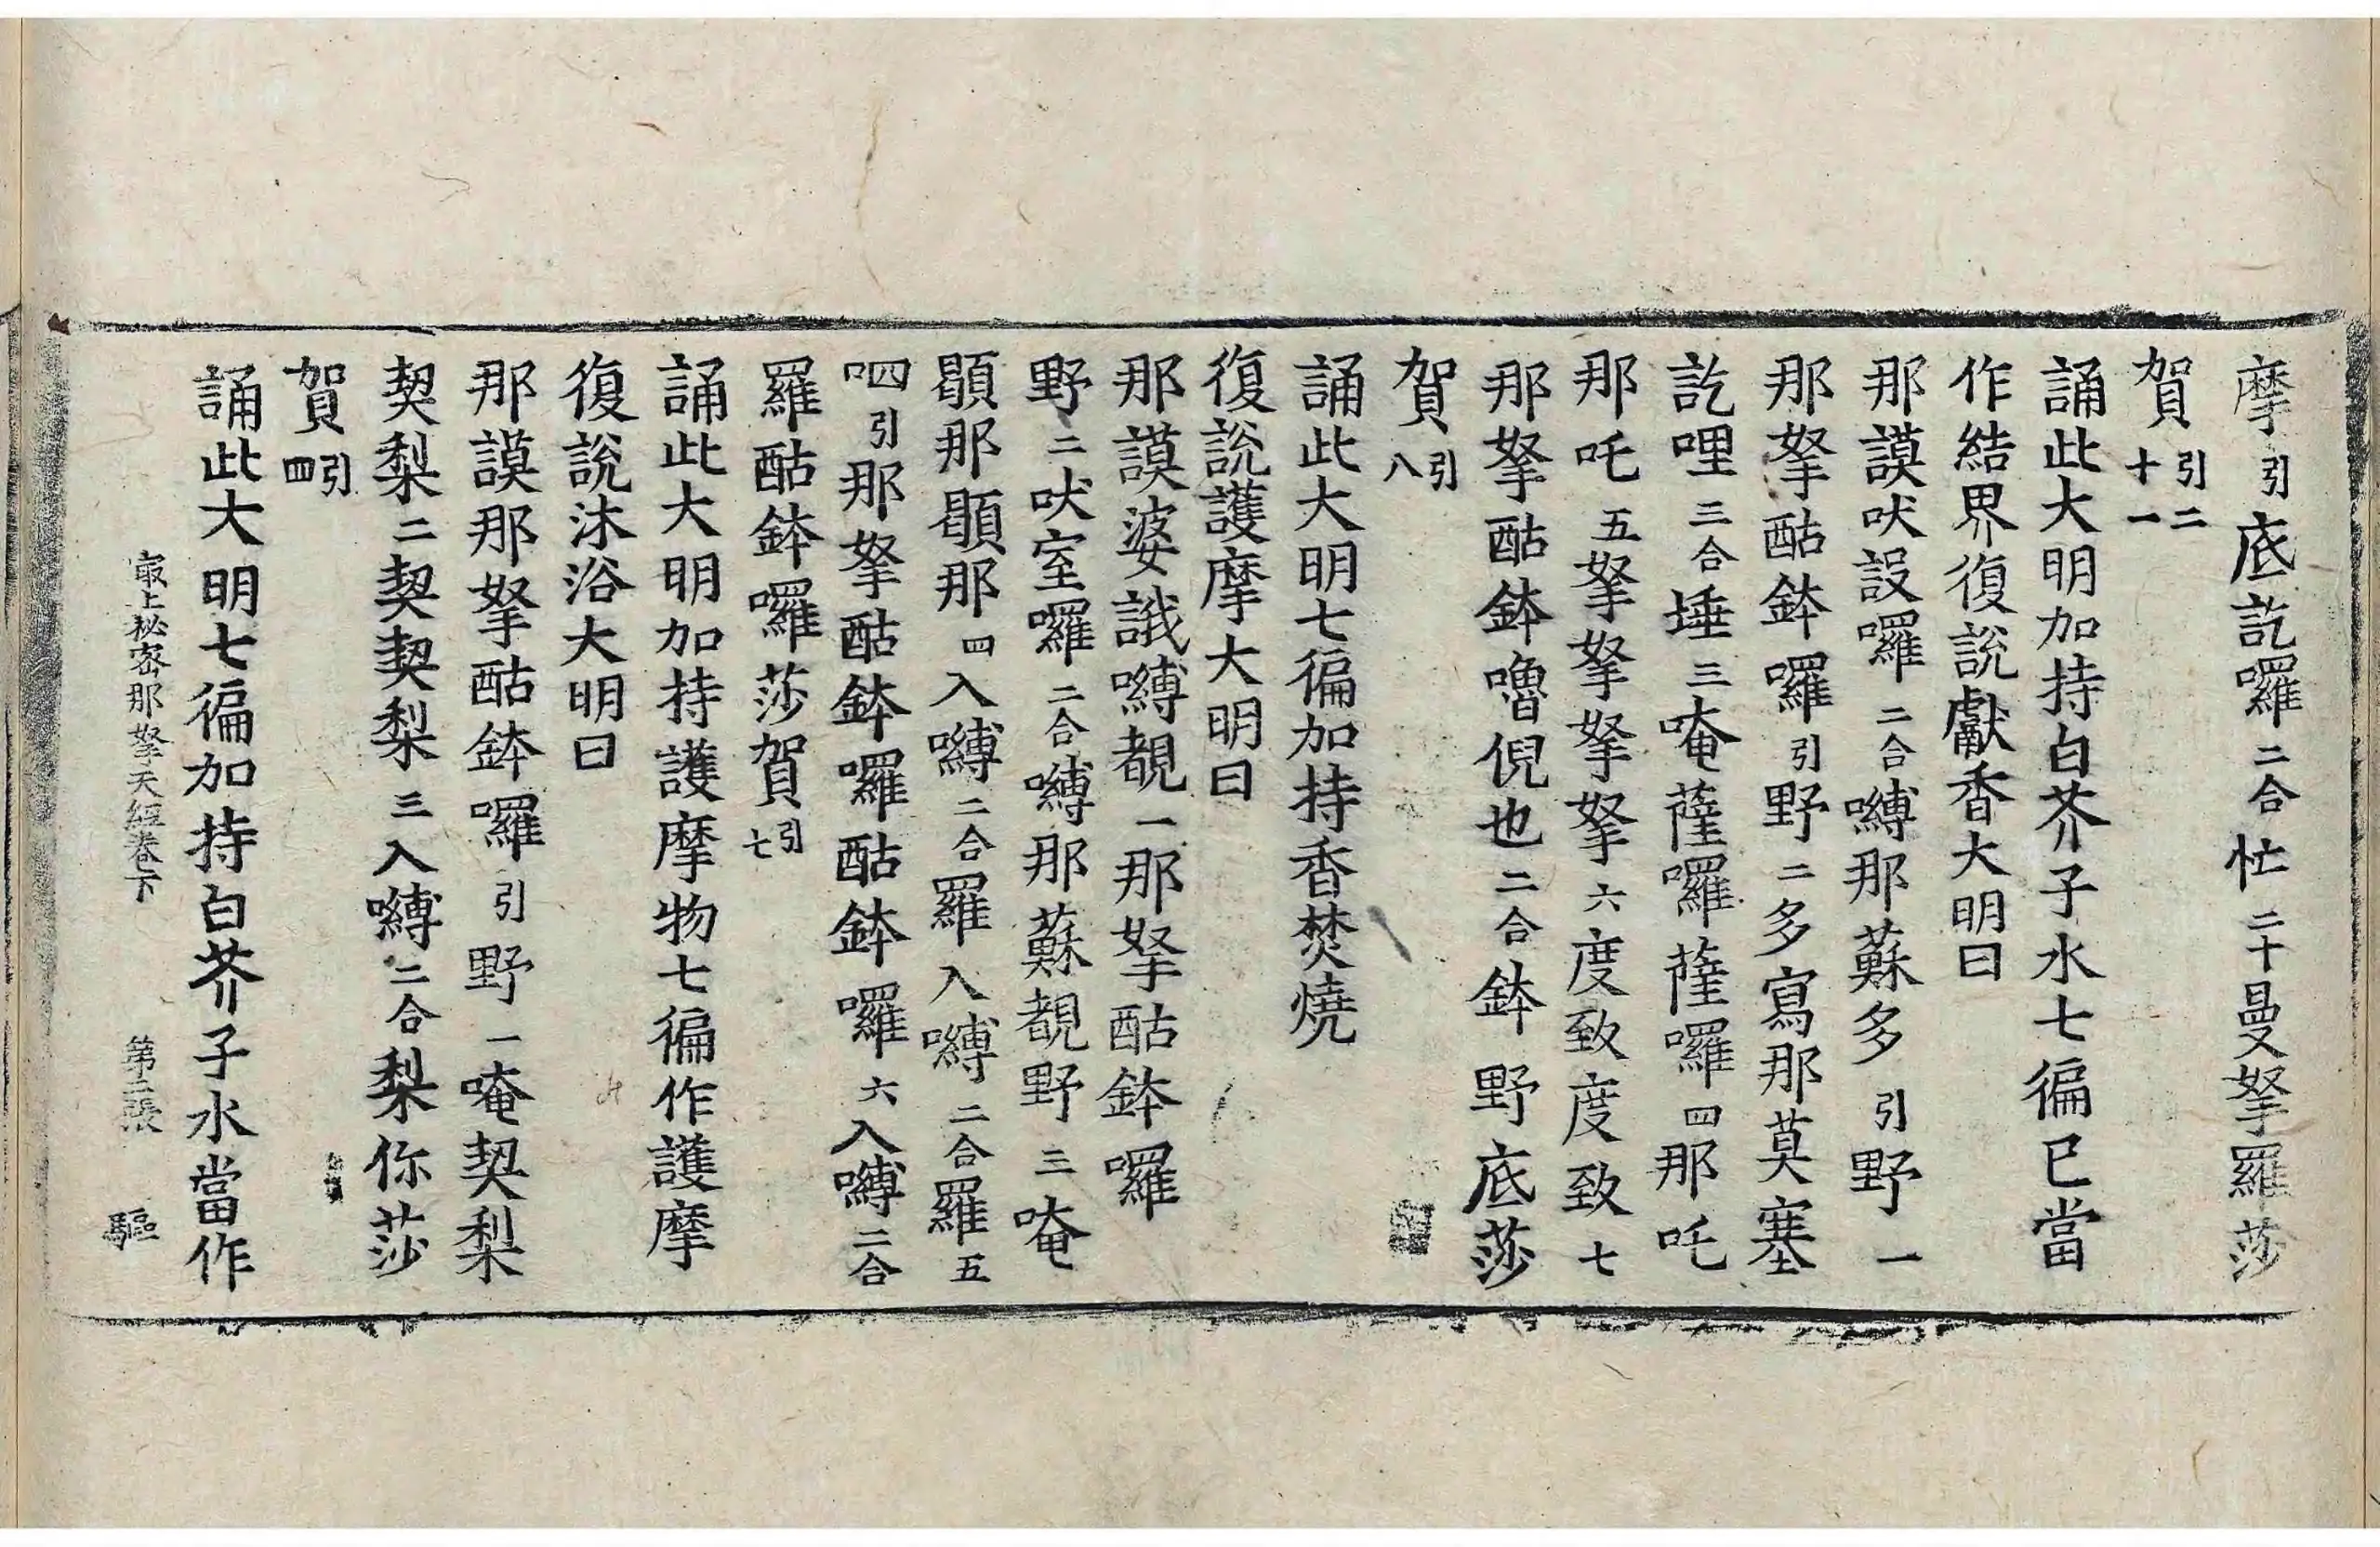 摩引底訖囉二合忙二十曼拏羅莎
賀引二十一
誦此大明加持白芥子水七徧已當
作結界復說獻香大明曰
那謨吠設囉二合嚩那蘇多引野一
那拏酤鉢囉引野二多寫那莫塞
訖哩三合埵三唵薩囉薩囉四那吒
那吒五拏拏拏拏六度致度致七
那拏酤鉢嚕倪也二合鉢野底莎
賀引八
誦此大明七徧加持香焚燒
復說護摩大明曰
那謨婆誐嚩覩一那拏酤鉢囉
野二吠室囉二合嚩那蘇覩野三唵
顖那顖那四入嚩二合羅入嚩二合羅五
呬引那拏酤鉢囉酤鉢囉六入嚩二合
羅酤鉢囉莎賀引七
誦此大明加持護摩物七徧作護摩
復說沐浴大明曰
那謨那拏酤鉢囉引野一唵契梨
契梨二契契梨三入嚩二合梨你莎
賀引四
誦此大明七徧加持白芥子水當作
最上秘密那拏天經卷下 第二張 驅